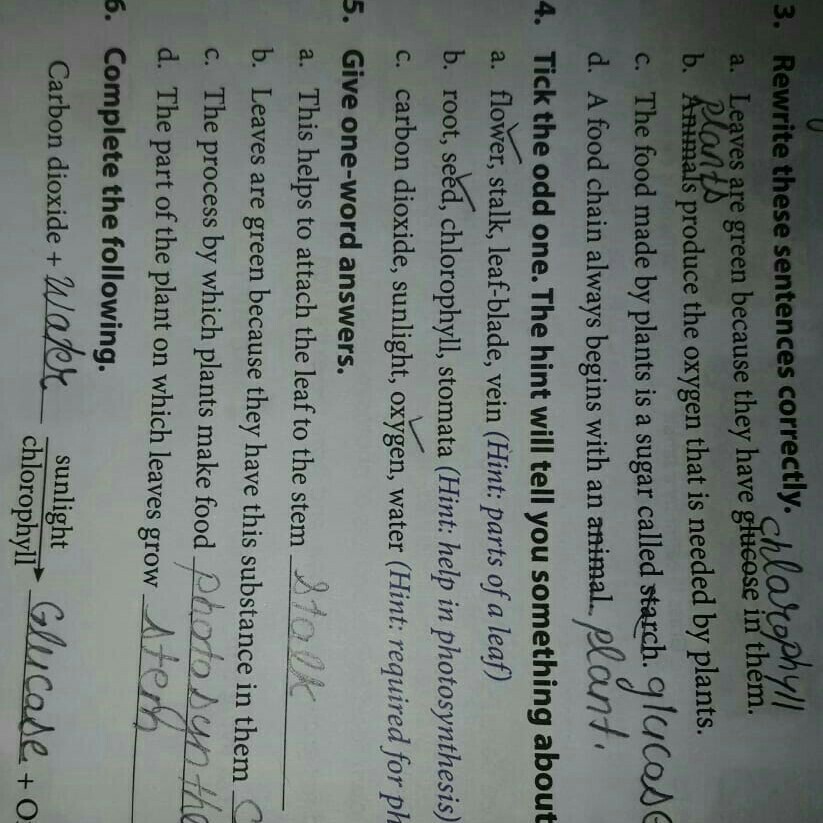 3. Rewrite these sentences correctly.
chlarophyll
a. Leaves are green because they have glucose in them.
plants
b. Animals produce the oxygen that is needed by plants.
c. The food made by plants is a sugar called starch. glucose
d. A food chain always begins with an animal. plant.
4. Tick the odd one. The hint will tell you something about
a. flower, stalk, leaf-blade, vein (Hint: parts of a leaf)
b. root, seed, chlorophyll, stomata (Hint: help in photosynthesis)
c. carbon dioxide, sunlight, oxygen, water (Hint: required for ph
5. Give one-word answers.
a. This helps to attach the leaf to the stem Stalk
b. Leaves are green because they have this substance in them C
c. The process by which plants make food photosynthe
d. The part of the plant on which leaves grow
6. Complete the following.
Carbon dioxide + Water sunlight chlorophyll Glucase + O